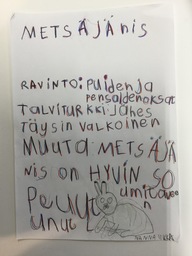 METSÄJÄNIS
RAVINTO: PUIDEN JA
PENSAIDEN OKSAT
TALVITURKKI: JÄHES
TÄYSIN VALKOINEN
MUUTA: METSÄJÄ
NIS ON HYVIN SO
PEUTU
UNUT